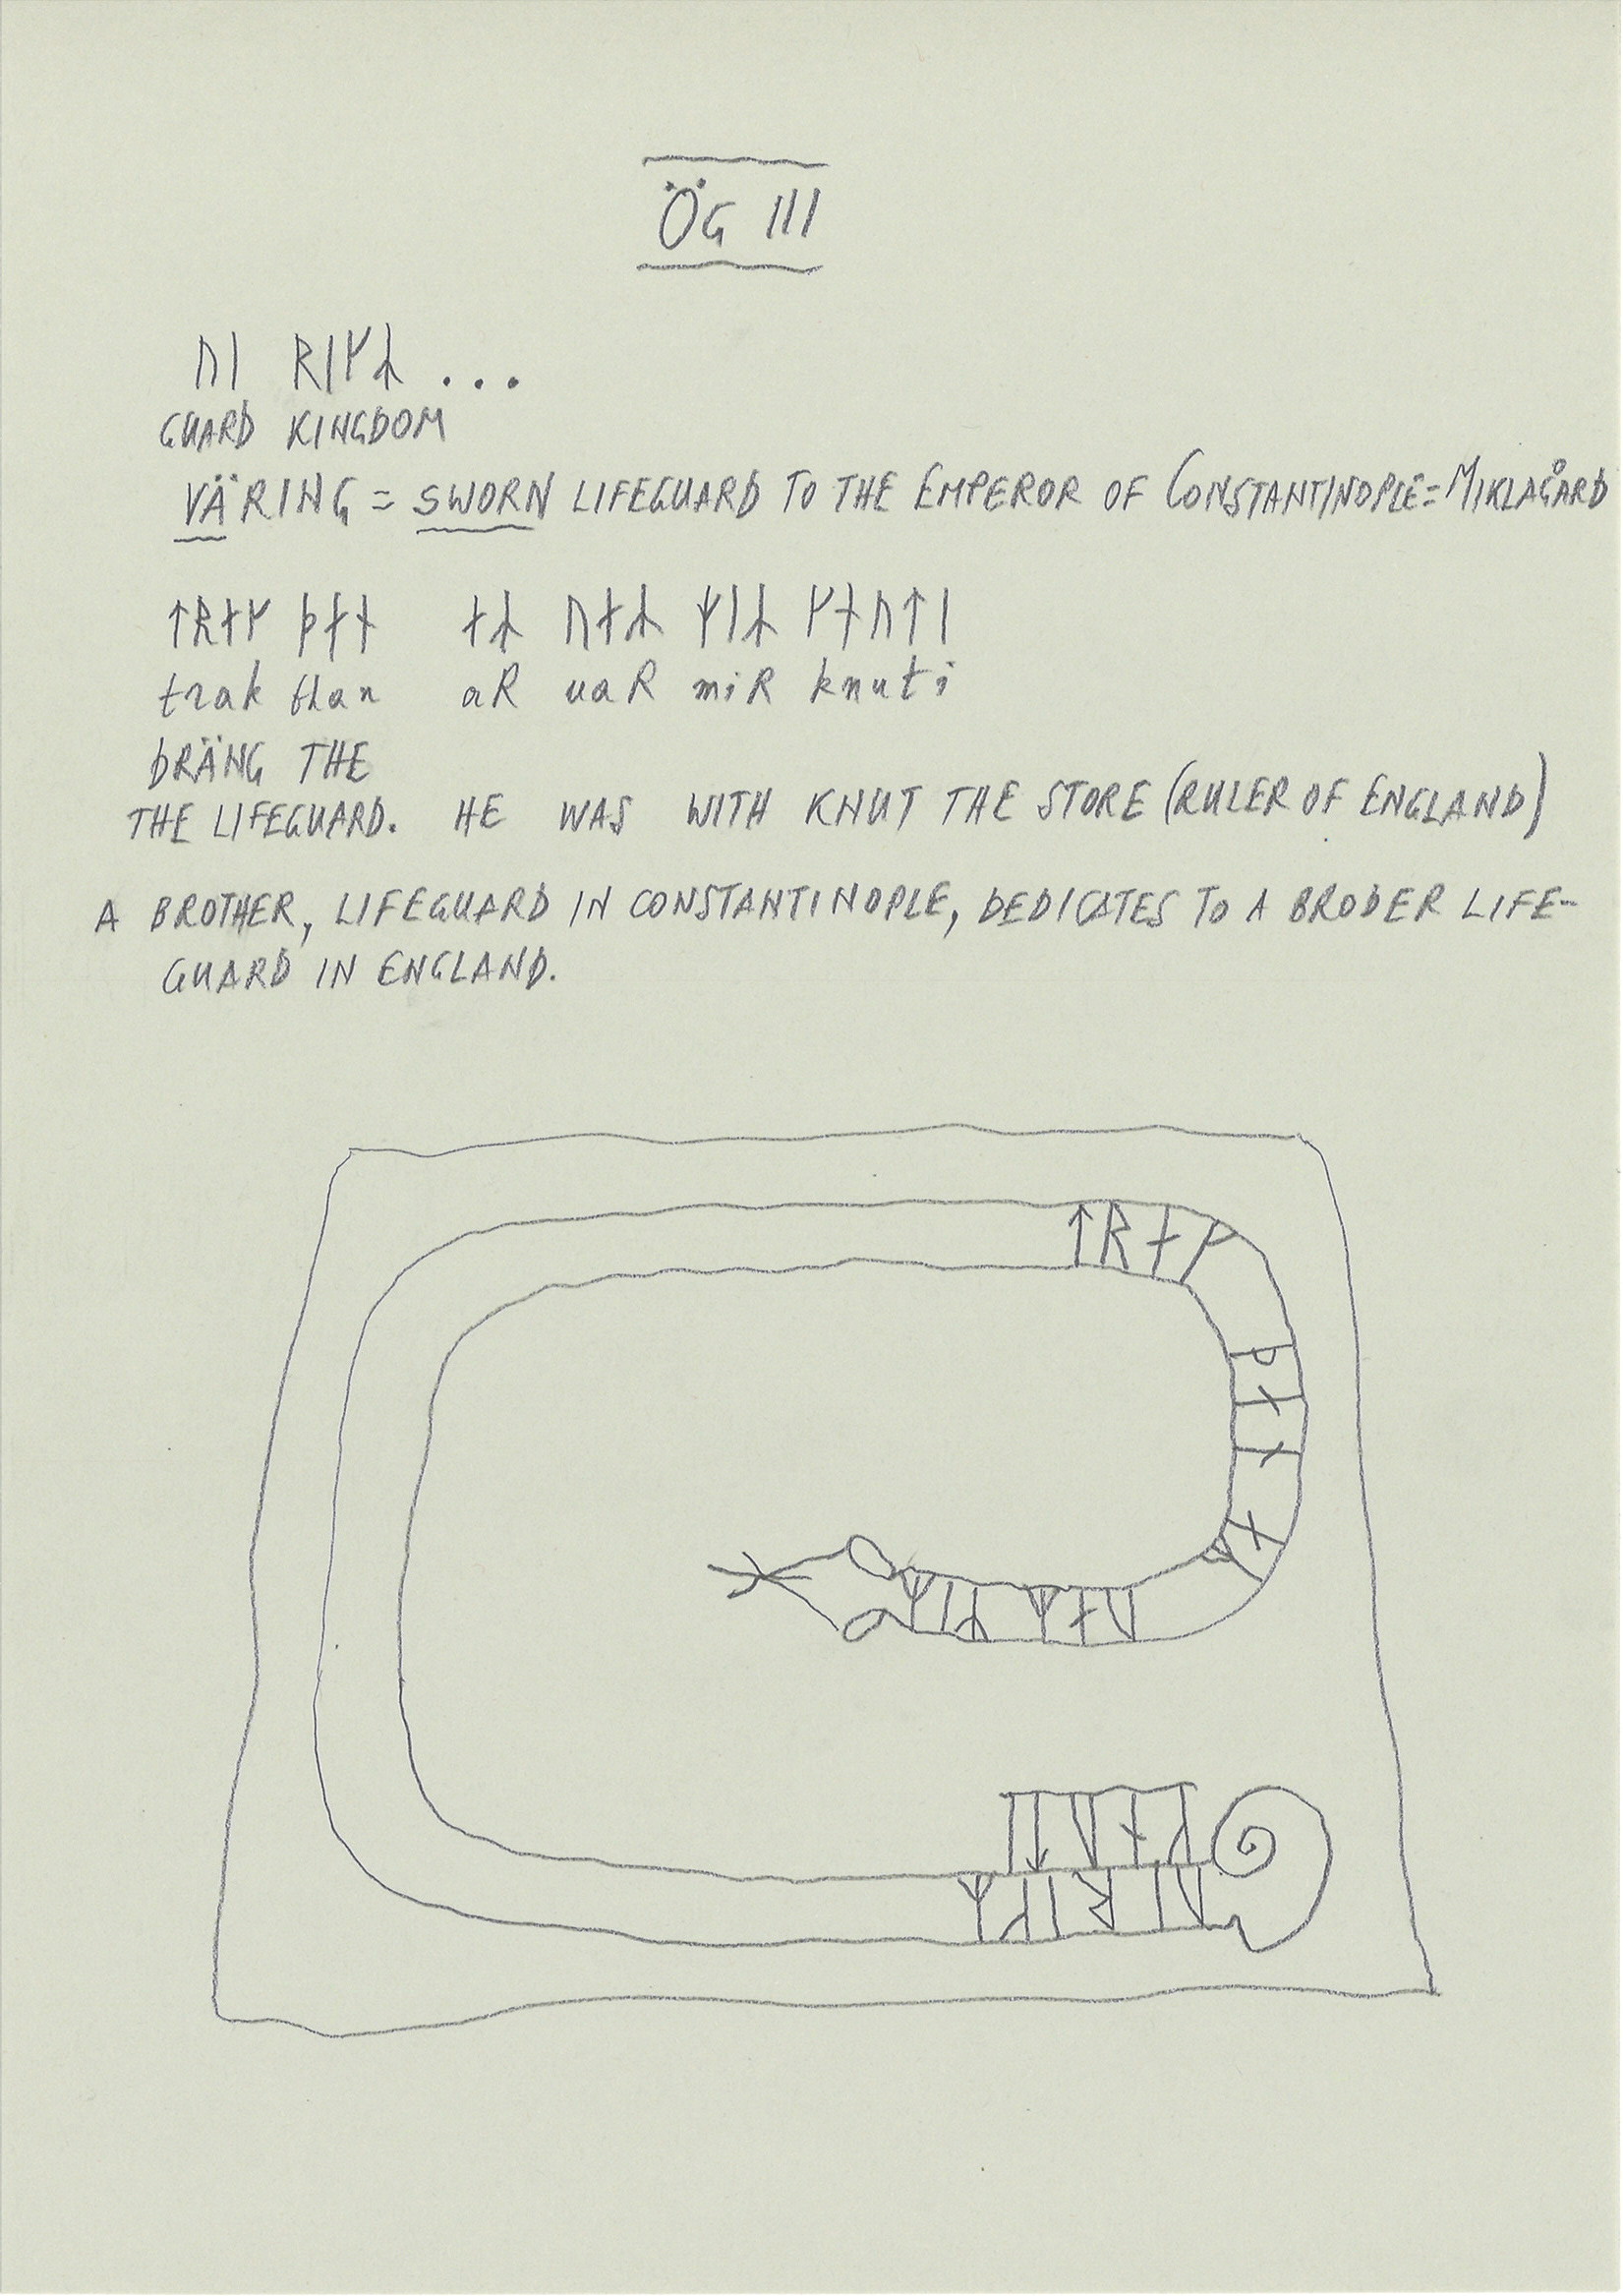 ÖG 111
ᚢᛁ ᚱᛁᚴᛦ ...
GUARD KINGDOM
VÄRING = SWORN LIFEGUARD TO THE EMPEROR OF CONSTANTINOPLE=MIKLAGÅRD
ᛏᚱᛅᚴ ᚦᛅᚾ ᛅᛦ ᚢᛅᛦ ᛘᛁᛦ ᚴᚾᚢᛏᛁ
trak than aR uaR miR knuti
DRÄNG THE
THE LIFEGUARD. HE WAS WITH KNUT THE STORE (RULER OF ENGLAND)
A BROTHER, LIFEGUARD IN CONSTANTINOPLE, DEDICATES TO A BRODER LIFE-
GUARD IN ENGLAND.
ᛏᚱᛅᚴ
ᚦᛅᚾ
ᛅᛦ